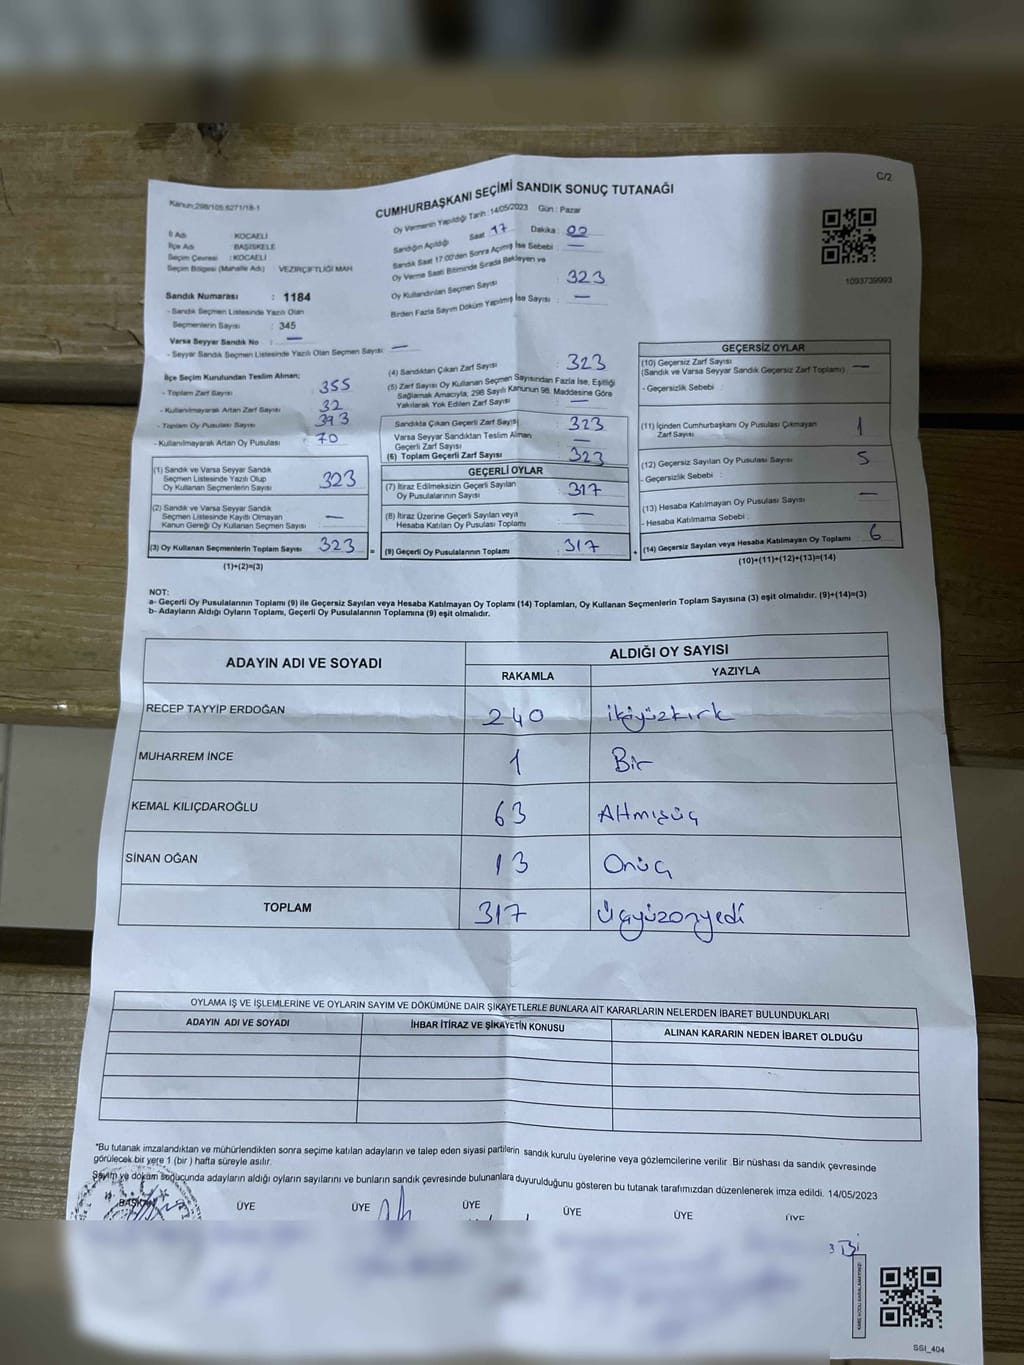 C/2
Kanun:298/105.6271/18-1
CUMHURBAŞKANI SEÇİMİ SANDIK SONUÇ TUTANAĞI
Oy Vermenin Yapıldığı Tarih : 14/05/2023 Gün : Pazar
İl Adı : KOCAELİ
İlçe Adı : BAŞİSKELE
Seçim Çevresi : KOCAELİ
Seçim Bölgesi (Mahalle Adı) : VEZİRÇİFTLİĞİ MAH
Sandığın Açıldığı Saat 17 Dakika : 02
Sandık Saat 17:00'den Sonra Açılmış İse Sebebi : —
Oy Verme Saati Bitiminde Sırada Bekleyen ve
Oy Kullandırılan Seçmen Sayısı 323
Birden Fazla Sayım Döküm Yapılmış İse Sayısı : —
1093739993
Sandık Numarası : 1184
- Sandık Seçmen Listesinde Yazılı Olan
Seçmenlerin Sayısı : 345
Varsa Seyyar Sandık No : —
- Seyyar Sandık Seçmen Listesinde Yazılı Olan Seçmen Sayısı: —
İlçe Seçim Kurulundan Teslim Alınan;
- Toplam Zarf Sayısı 355
- Kullanılmayarak Artan Zarf Sayısı : 32
- Toplam Oy Pusulası Sayısı 393
- Kullanılmayarak Artan Oy Pusulası : 70
(1) Sandık ve Varsa Seyyar Sandık
Seçmen Listesinde Yazılı Olup
Oy Kullanan Seçmenlerin Sayısı 323
(2) Sandık ve Varsa Seyyar Sandık
Seçmen Listesinde Kayıtlı Olmayan
Kanun Gereği Oy Kullanan Seçmen Sayısı —
(3) Oy Kullanan Seçmenlerin Toplam Sayısı 323 =
(1)+(2)=(3)
(4) Sandıktan Çıkan Zarf Sayısı : 323
(5) Zarf Sayısı Oy Kullanan Seçmen Sayısından Fazla İse, Eşitliği
Sağlamak Amacıyla, 298 Sayılı Kanunun 98. Maddesine Göre
Yakılarak Yok Edilen Zarf Sayısı : —
Sandıkta Çıkan Geçerli Zarf Sayısı : 323
Varsa Seyyar Sandıktan Teslim Alınan
Geçerli Zarf Sayısı —
(6) Toplam Geçerli Zarf Sayısı : 323
GEÇERLİ OYLAR
(7) İtiraz Edilmeksizin Geçerli Sayılan
Oy Pusulalarının Sayısı : 317
(8) İtiraz Üzerine Geçerli Sayılan veya
Hesaba Katılan Oy Pusulası Toplamı : —
(9) Geçerli Oy Pusulalarının Toplamı : 317 +
GEÇERSİZ OYLAR
(10) Geçersiz Zarf Sayısı
(Sandık ve Varsa Seyyar Sandık Geçersiz Zarf Toplamı) : —
- Geçersizlik Sebebi :
(11) İçinden Cumhurbaşkanı Oy Pusulası Çıkmayan
Zarf Sayısı 1
(12) Geçersiz Sayılan Oy Pusulası Sayısı : 5
- Geçersizlik Sebebi :
(13) Hesaba Katılmayan Oy Pusulası Sayısı : —
- Hesaba Katılmama Sebebi :
(14) Geçersiz Sayılan veya Hesaba Katılmayan Oy Toplamı : 6
(10)+(11)+(12)+(13)=(14)
NOT:
a- Geçerli Oy Pusulalarının Toplamı (9) ile Geçersiz Sayılan veya Hesaba Katılmayan Oy Toplamı (14) Toplamları, Oy Kullanan Seçmenlerin Toplam Sayısına (3) eşit olmalıdır. (9)+(14)=(3)
b- Adayların Aldığı Oyların Toplamı, Geçerli Oy Pusulalarının Toplamına (9) eşit olmalıdır.
ADAYIN ADI VE SOYADI ALDIĞI OY SAYISI
RAKAMLA YAZIYLA
RECEP TAYYİP ERDOĞAN 240 ikiyüzkırk
MUHARREM İNCE 1 Bir
KEMAL KILIÇDAROĞLU 63 Altmışüç
SİNAN OĞAN 13 Onüç
TOPLAM 317 Üçyüzonyedi
OYLAMA İŞ VE İŞLEMLERİNE VE OYLARIN SAYIM VE DÖKÜMÜNE DAİR ŞİKAYETLERLE BUNLARA AİT KARARLARIN NELERDEN İBARET BULUNDUKLARI
ADAYIN ADI VE SOYADI İHBAR İTİRAZ VE ŞİKAYETİN KONUSU ALINAN KARARIN NEDEN İBARET OLDUĞU
*Bu tutanak imzalandıktan ve mühürlendikten sonra seçime katılan adayların ve talep eden siyasi partilerin sandık kurulu üyelerine veya gözlemcilerine verilir .Bir nüshası da sandık çevresinde
görülecek bir yere 1 (bir ) hafta süreyle asılır.
Sayım ve döküm sonucunda adayların aldığı oyların sayılarını ve bunların sandık çevresinde bulunanlara duyurulduğunu gösteren bu tutanak tarafımızdan düzenlenerek imza edildi. 14/05/2023
BAŞKAN ÜYE ÜYE ÜYE ÜYE ÜYE ÜYE
SSI_404